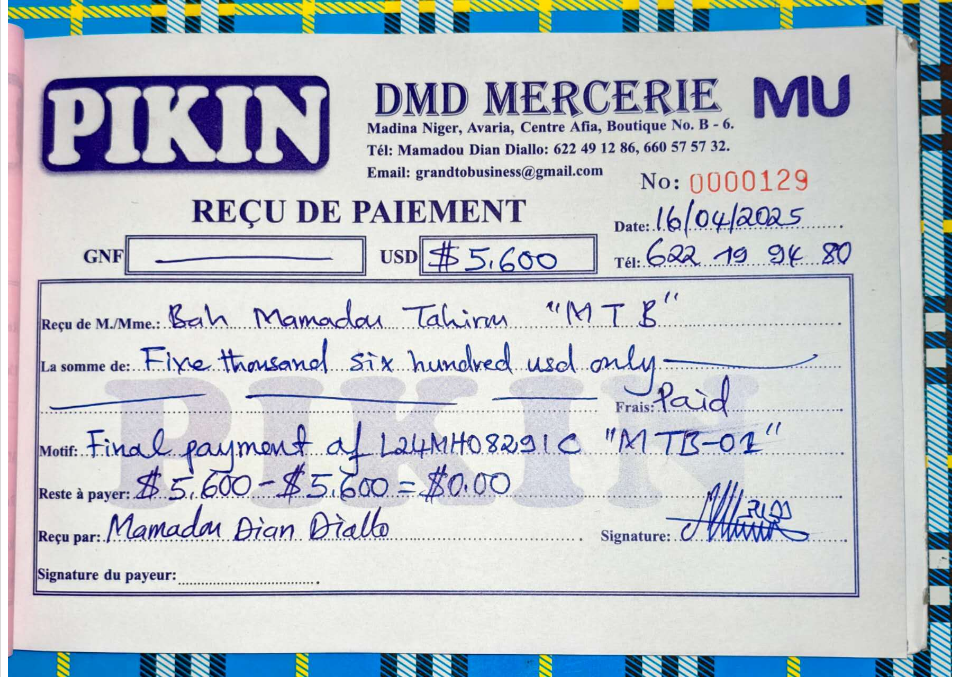 PIKIN
DMD MERCERIE MU
Madina Niger, Avaria, Centre Afia, Boutique No. B - 6.
Tél: Mamadou Dian Diallo: 622 49 12 86, 660 57 57 32.
Email: grandtobusiness@gmail.com
No: 0000129
REÇU DE PAIEMENT
Date: 16/04/2025
GNF USD $ 5,600
Tél: 622 19 94 80
Reçu de M./Mme.: Bah Mamadou Tahirou "MTB"
La somme de: Five thousand six hundred usd only
Frais: Paid
Motif: Final payment of L24MH08291C "MTB-01"
Reste à payer: $ 5,600 - $5,600 = $0.00
Reçu par: Mamadou Dian Diallo Signature:
Signature du payeur:
PIKIN